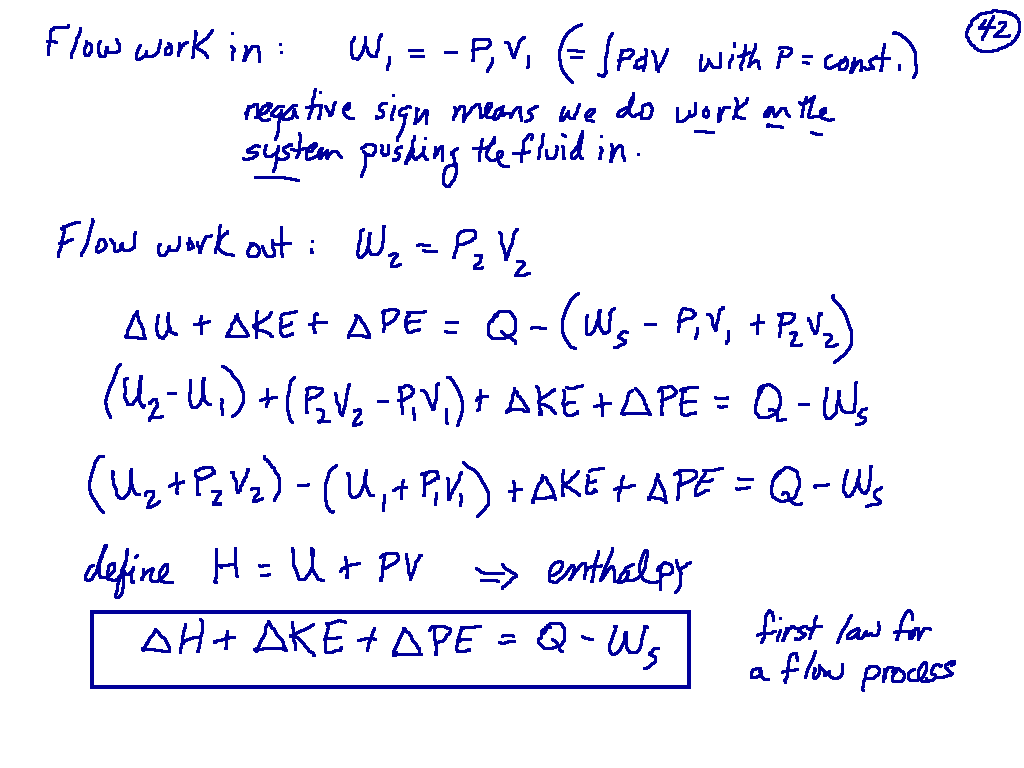 42
Flow work in : W₁ = - P₁V₁ (= ∫PdV with P = const.)
negative sign means we do work on the
system pushing the fluid in.
Flow work out : W₂ = P₂ V₂
ΔU + ΔKE + ΔPE = Q - (Wₛ - P₁V₁ + P₂V₂)
(U₂ - U₁) + (P₂V₂ - P₁V₁) + ΔKE + ΔPE = Q - Wₛ
(U₂ + P₂V₂) - (U₁ + P₁V₁) + ΔKE + ΔPE = Q - Wₛ
define H = U + PV ⇒ enthalpy
ΔH + ΔKE + ΔPE = Q - Wₛ
first law for
a flow process